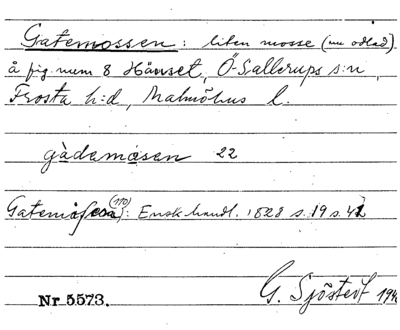 Gatemossen: liten mosse (nu odlad)
å fig. num 8 Hånset, Ö. Sallerups s:n,
Frosta h:d, Malmöhus l.
gàdemåsen 22
Gatemåsen (110): Ensk. handl. 1828 s. 19 s. 42
Nr. 5573.
G. Sjöstedt